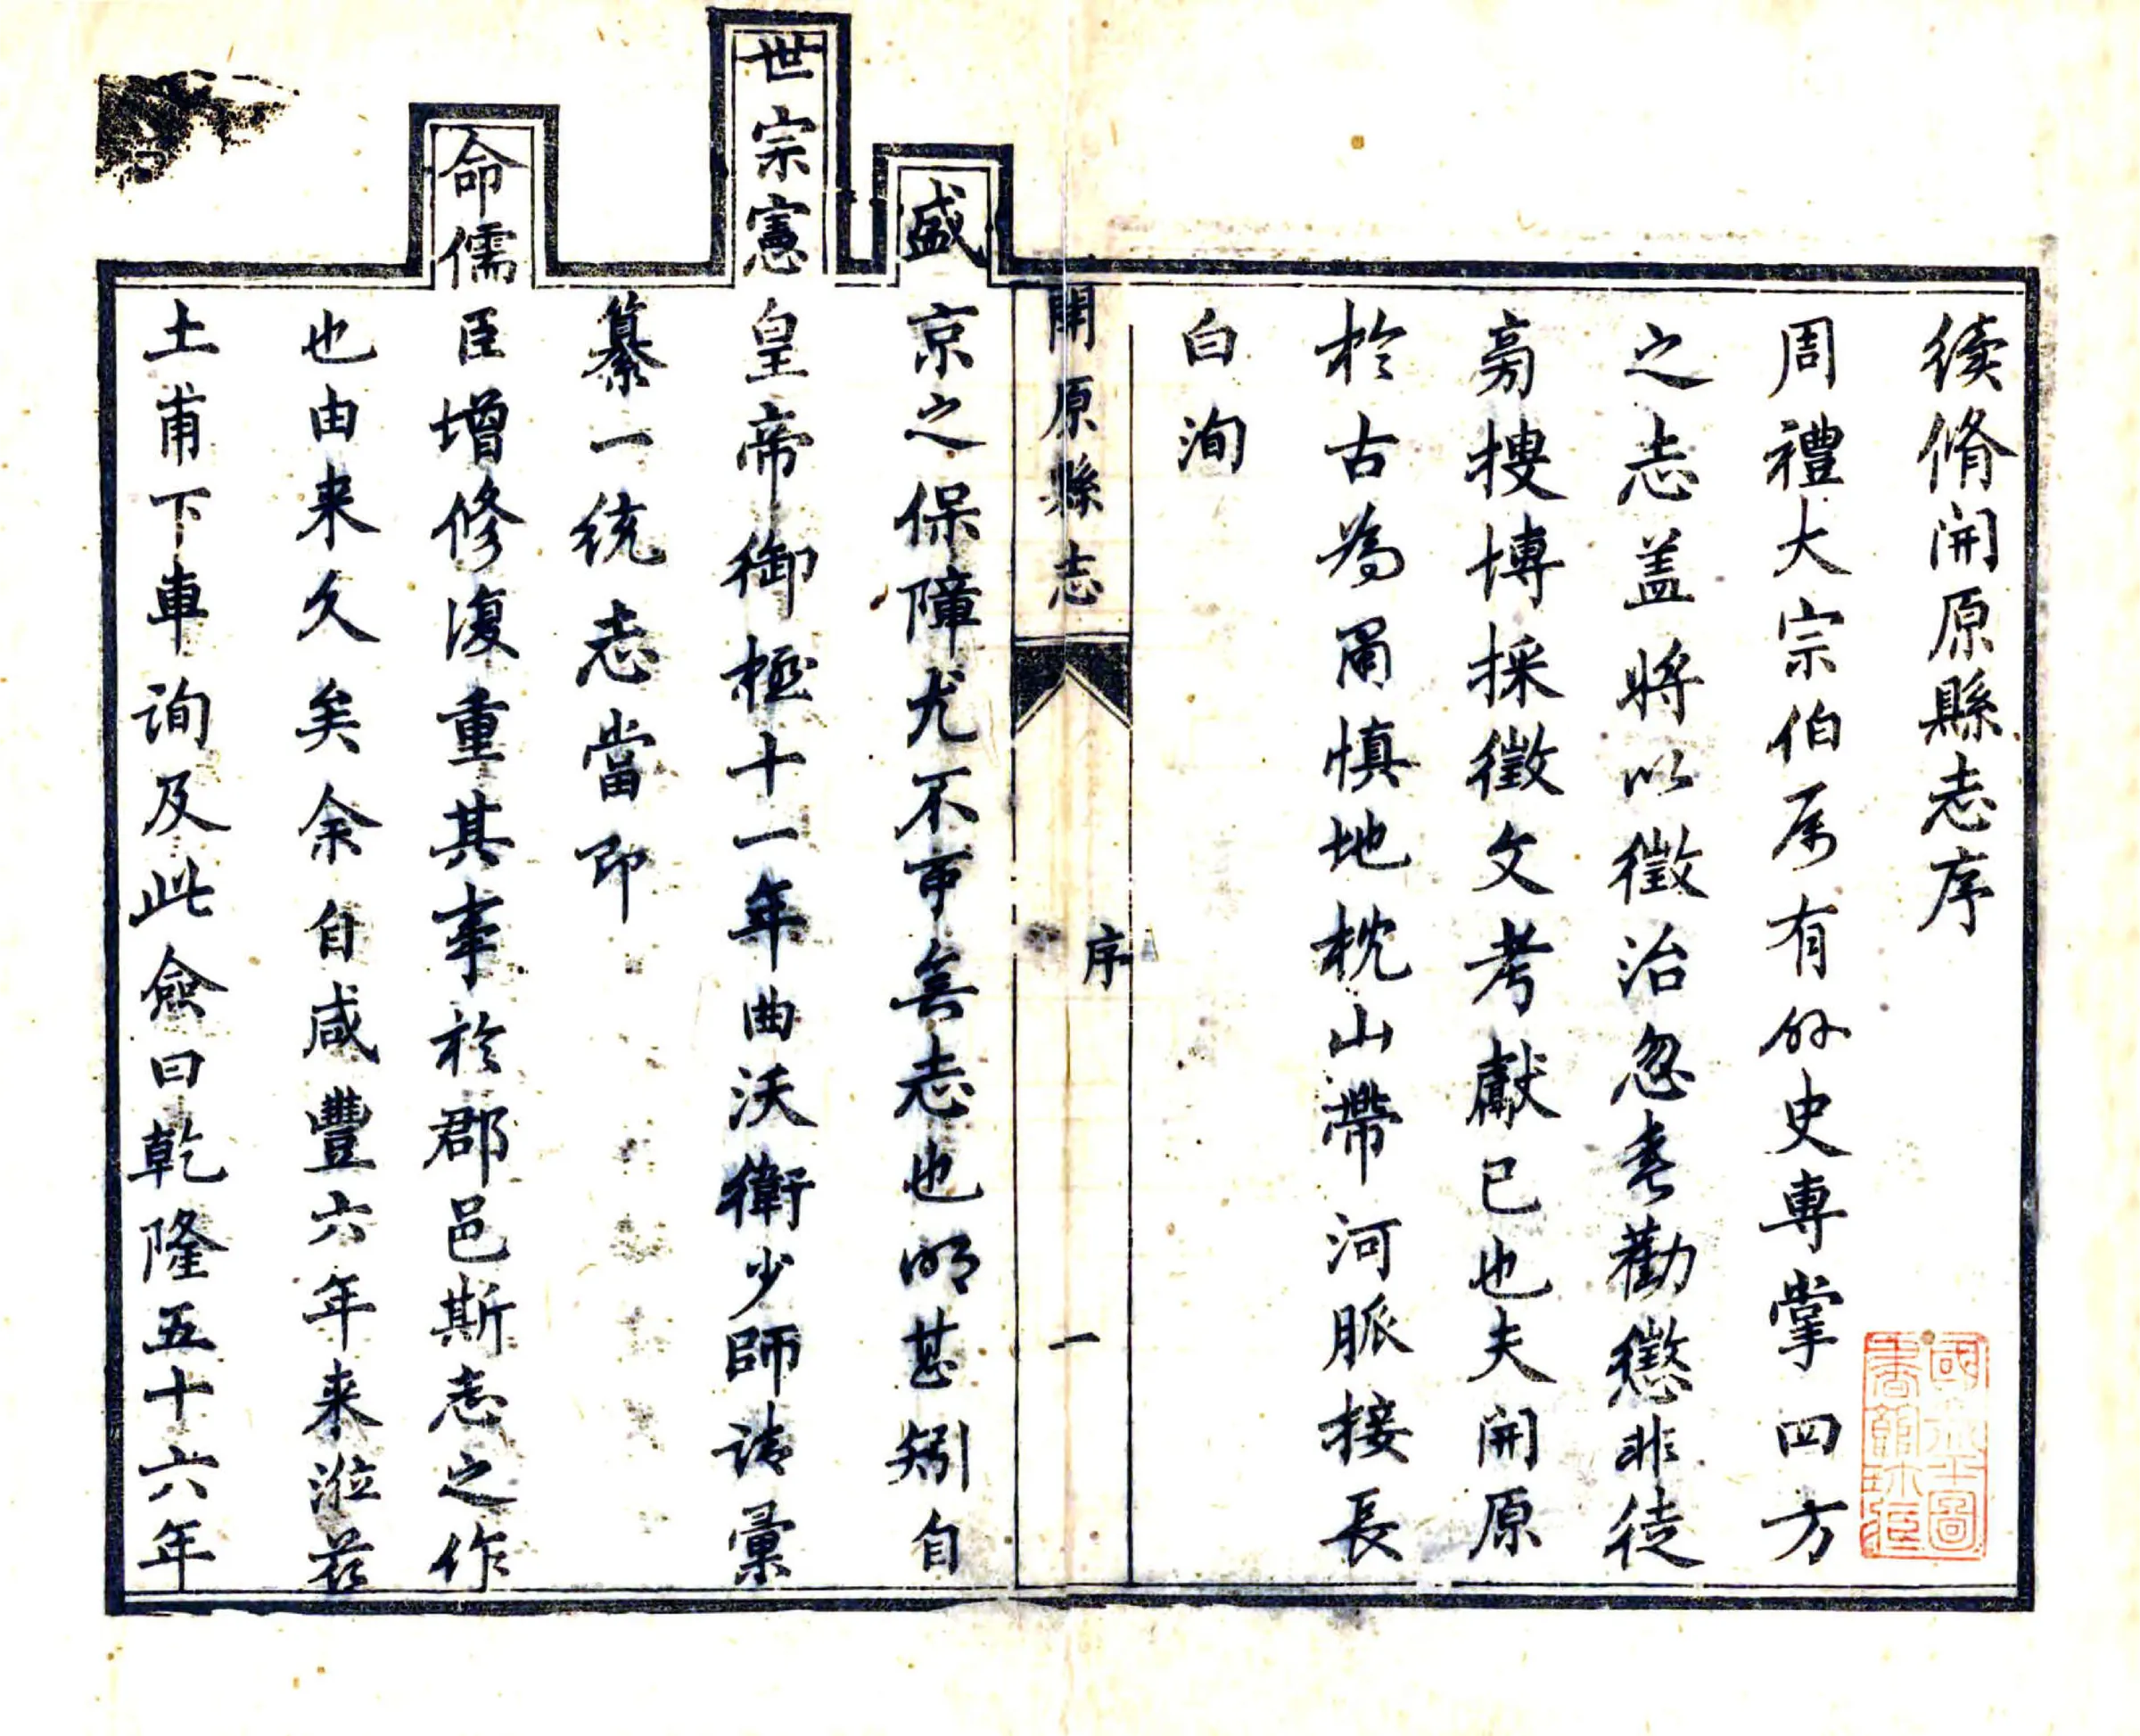 續脩開原縣志序
周禮大宗伯属有外史專掌四方
之志盖將以徵治忽書勸懲非徒
旁搜博採徵文考獻已也夫開原
於古為肅慎地枕山帶河脈接長
白洵
開原縣志 序 一
盛京之保障尤不可無志也明甚矧自
世宗憲皇帝御極十一年曲沃衛少師請彙
纂一統志當即
命儒臣增修復重其事於郡邑斯志之作
也由来久矣余自咸豐六年来涖茲
土甫下車詢及此僉曰乾隆五十六年